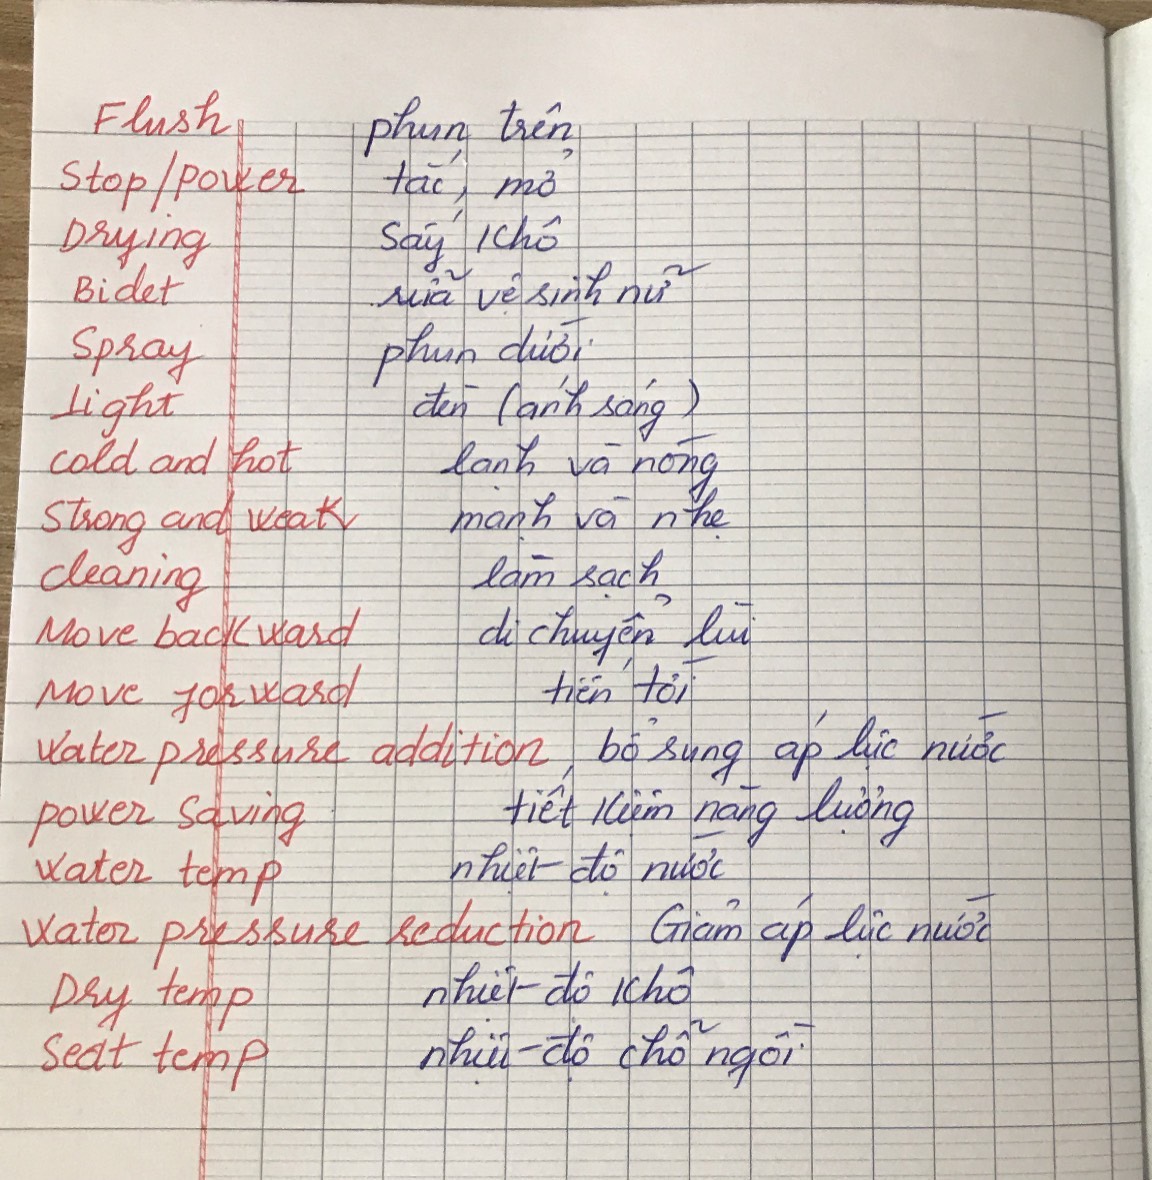 Flush phun trên
Stop/power tắt, mở
Drying Sấy khô
Bidet rửa vệ sinh nữ
Spray phun dưới
Light đèn (ánh sáng)
cold and hot lạnh và nóng
Strong and weak mạnh và nhẹ
cleaning làm sạch
Move backward di chuyển lùi
Move forward tiến tới
Water pressure addition, bổ sung áp lực nước
power saving tiết kiệm năng lượng
Water temp nhiệt độ nước
Water pressure reduction Giảm áp lực nước
Dry temp nhiệt độ khô
Seat temp nhiệt độ chỗ ngồi